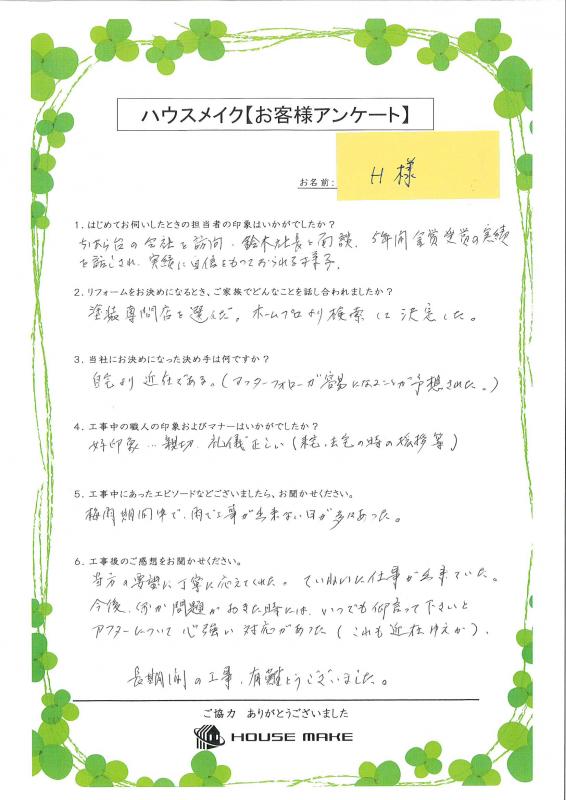 ハウスメイク【お客様アンケート】
お名前：
H 様
1．はじめてお伺いしたときの担当者の印象はいかがでしたか？
の会社を訪問、鈴木社長と面談、5年間金賞受賞の実績
を話され、実績に自信をもっておられる様子。
2．リフォームをお決めになるとき、ご家族でどんなことを話し合われましたか？
塗装専門店を選んだ。ホームプロより検索して決定した。
3．当社にお決めになった決め手は何ですか？
自宅より近在である。（アフターフォローが容易になることが予想された。）
4．工事中の職人の印象およびマナーはいかがでしたか？
好印象…親切、礼儀正しい（来宅、去宅の時の挨拶等）
5．工事中にあったエピソードなどございましたら、お聞かせください。
梅雨期間中で、雨で工事が出来ない日が多くあった。
6．工事後のご感想をお聞かせください。
当方の要望に丁寧に応えてくれた。ていねいに仕事が出来ていた。
今後、何か問題がおきた時には、いつでも仰言って下さいと
アフターについて心強い対応があった（これも近在ゆえか）。
長期間の工事、有難とうございました。
ご協力 ありがとうございました
HOUSE MAKE